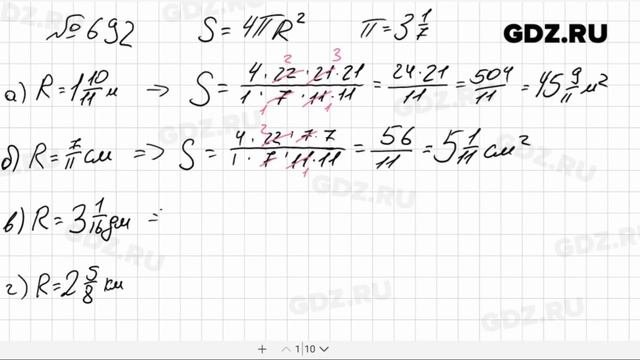 №692 S = 4πR² π = 3 1/7 GDZ.RU
а) R = 1 10/11 м → S = (4 · 22 · 21 · 21)/(1 · 7 · 11 · 11) = (24 · 21)/11 = 504/11 = 45 9/11 м²
б) R = 7/11 см => S = (4 · 22 · 7 · 7)/(1 · 7 · 11 · 11) = 56/11 = 5 1/11 см²
в) R = 3 1/16 дм =
г) R = 2 5/8 км
GDZ.RU
1|10